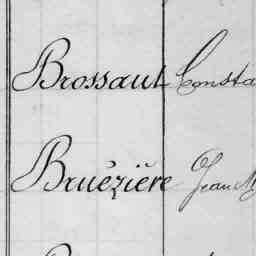 Brossaut Consta
Bruézière Jean M